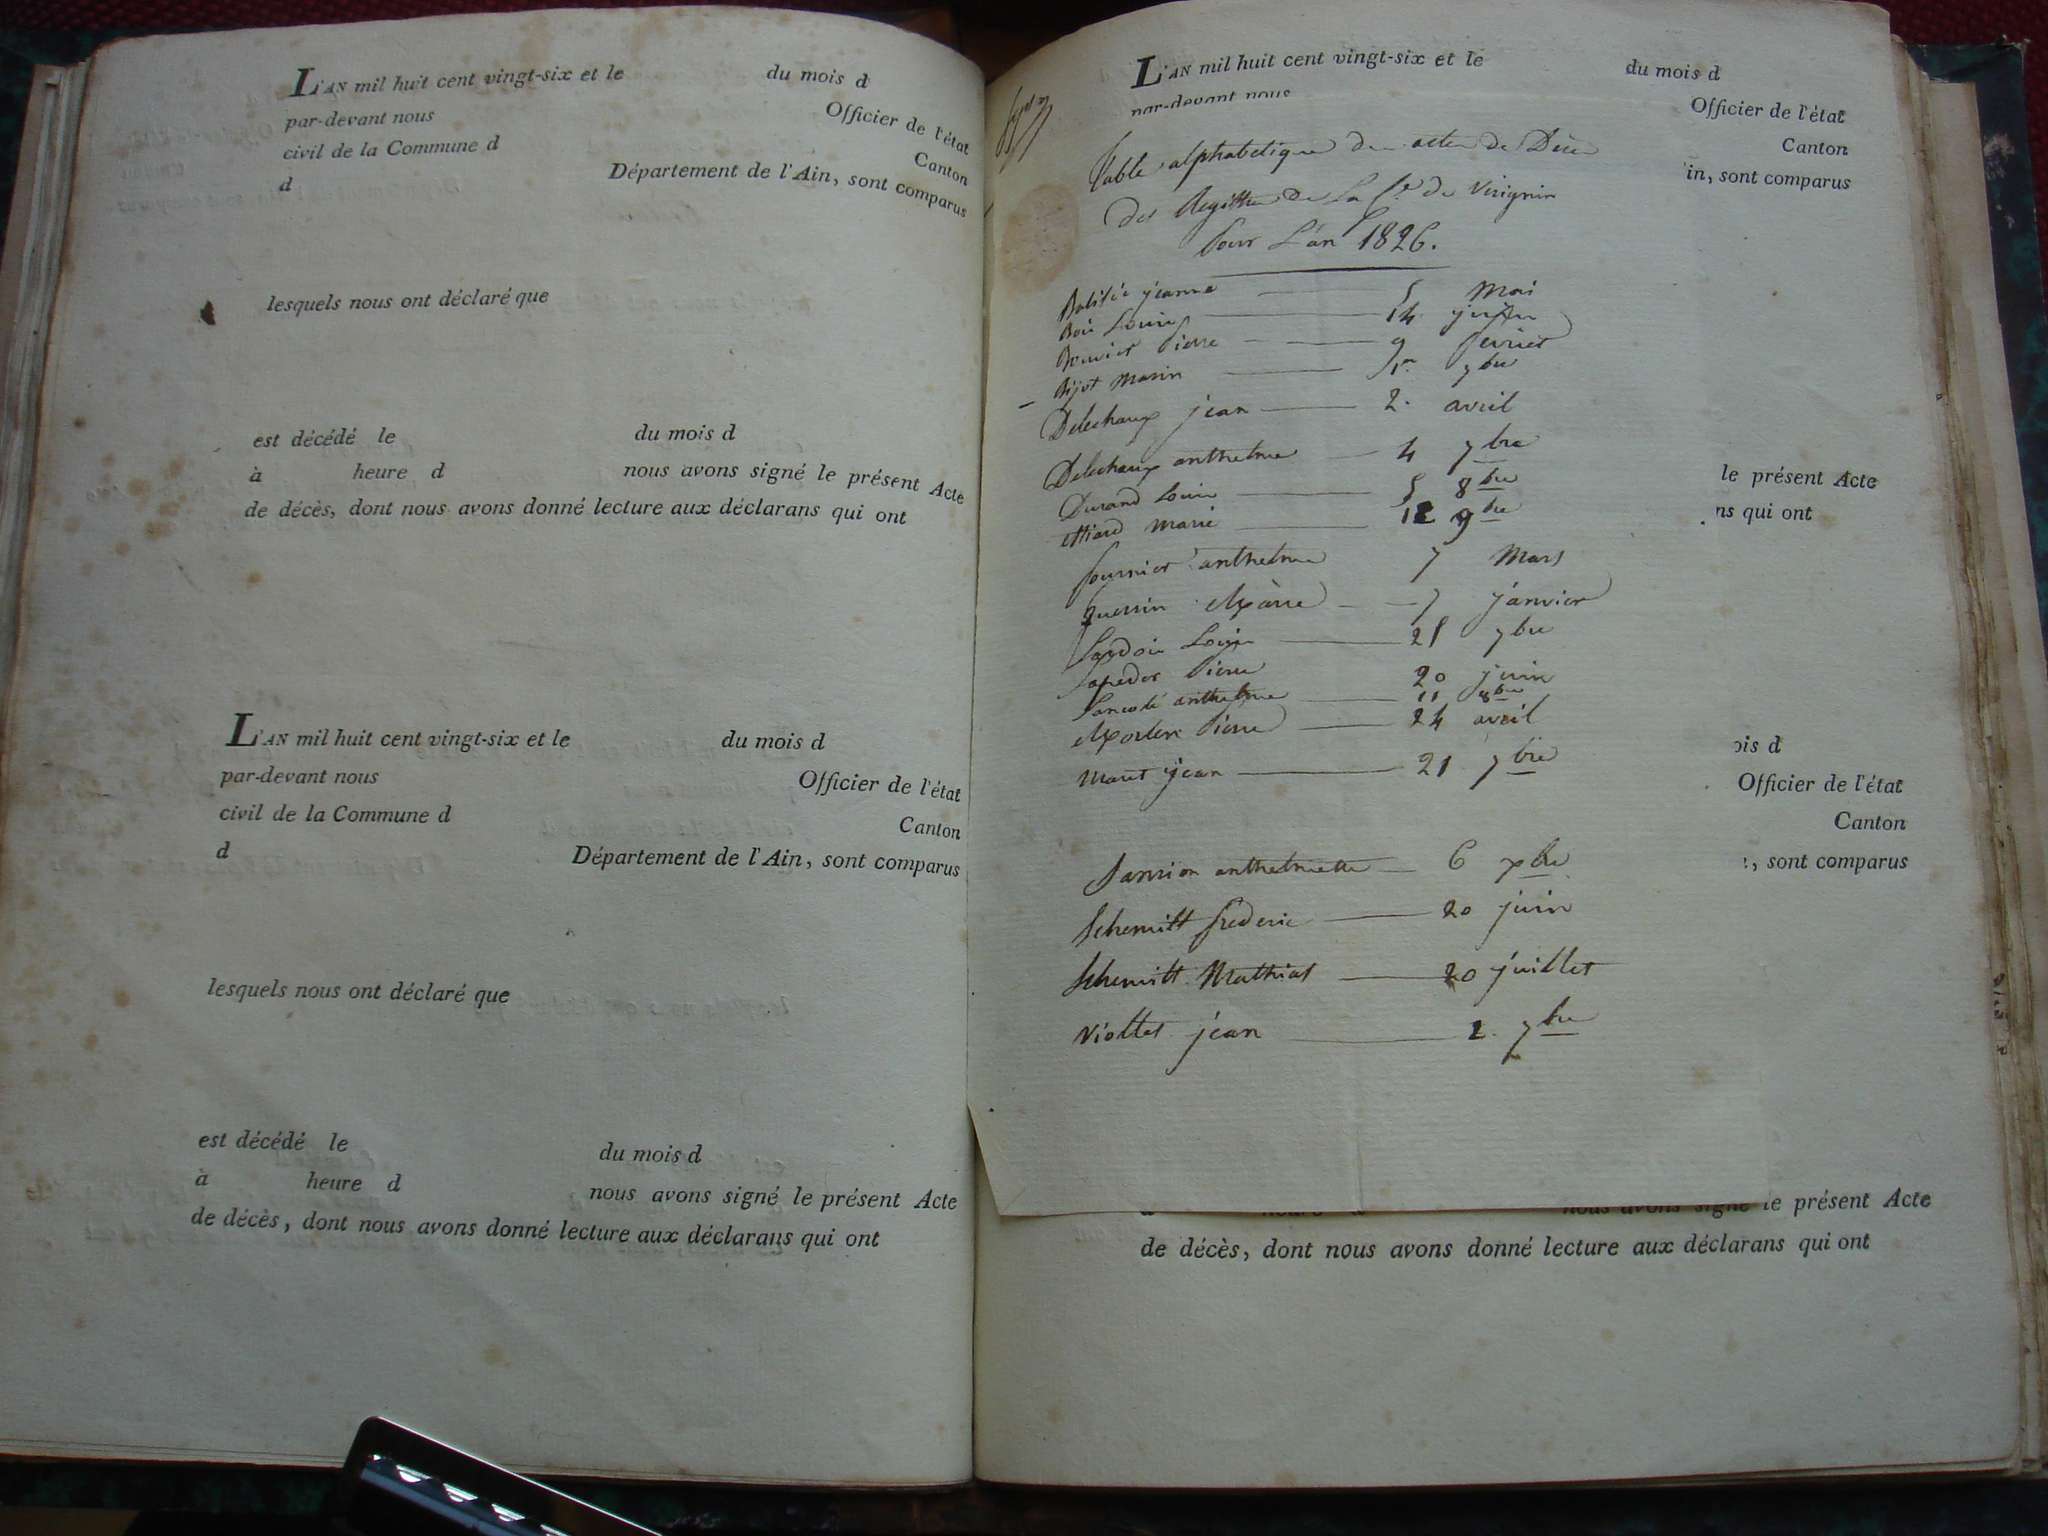 L'AN mil huit cent vingt-six et le du mois d
par-devant nous Officier de l'état
civil de la Commune d Canton
d Département de l'Ain, sont comparus
lesquels nous ont déclaré que
est décédé le du mois d
à heure d nous avons signé le présent Acte
de décès, dont nous avons donné lecture aux déclarans qui ont
L'AN mil huit cent vingt-six et le du mois d
par-devant nous Officier de l'état
civil de la Commune d Canton
d Département de l'Ain, sont comparus
lesquels nous ont déclaré que
est décédé le du mois d
à heure d nous avons signé le présent Acte
de décès, dont nous avons donné lecture aux déclarans qui ont
L'AN mil huit cent vingt-six et le du mois d
par-devant nous Officier de l'état
Canton
in, sont comparus
Table alphabetique des actes de Décès
des Registres de la Cne de Virignin
pour L'an 1826.
jeanne 5 Mai
Louise 14
Bouvier Pierre 9 fevrier
Marin 7bre
Delechaux jean 2. avril
Delechaux anthelme 4 7bre
Durand Louise 5 8bre
Marie 12 9bre
fournier anthelme 7 Mars
7 janvier
21 7bre
Pierre 20 juin
anthelme 11 8bre
Pierre 24 avril
Maret jean 21 7bre
anthelmette 6 xbre
Schemitt frederic 20 juin
Schemitt Mathias 20 juillet
Viollet jean 2. 7bre
le présent Acte
ns qui ont
ois d
Officier de l'état
Canton
, sont comparus
nous avons signé le présent Acte
de décès, dont nous avons donné lecture aux déclarans qui ont